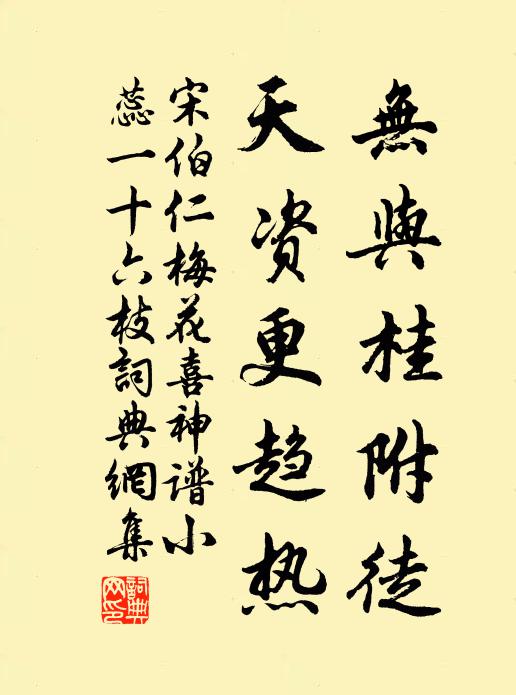 無與桂附徒
天资更趋热
宋伯仁梅花喜神谱小
蕊一十六枝詞典網集
詞典網印